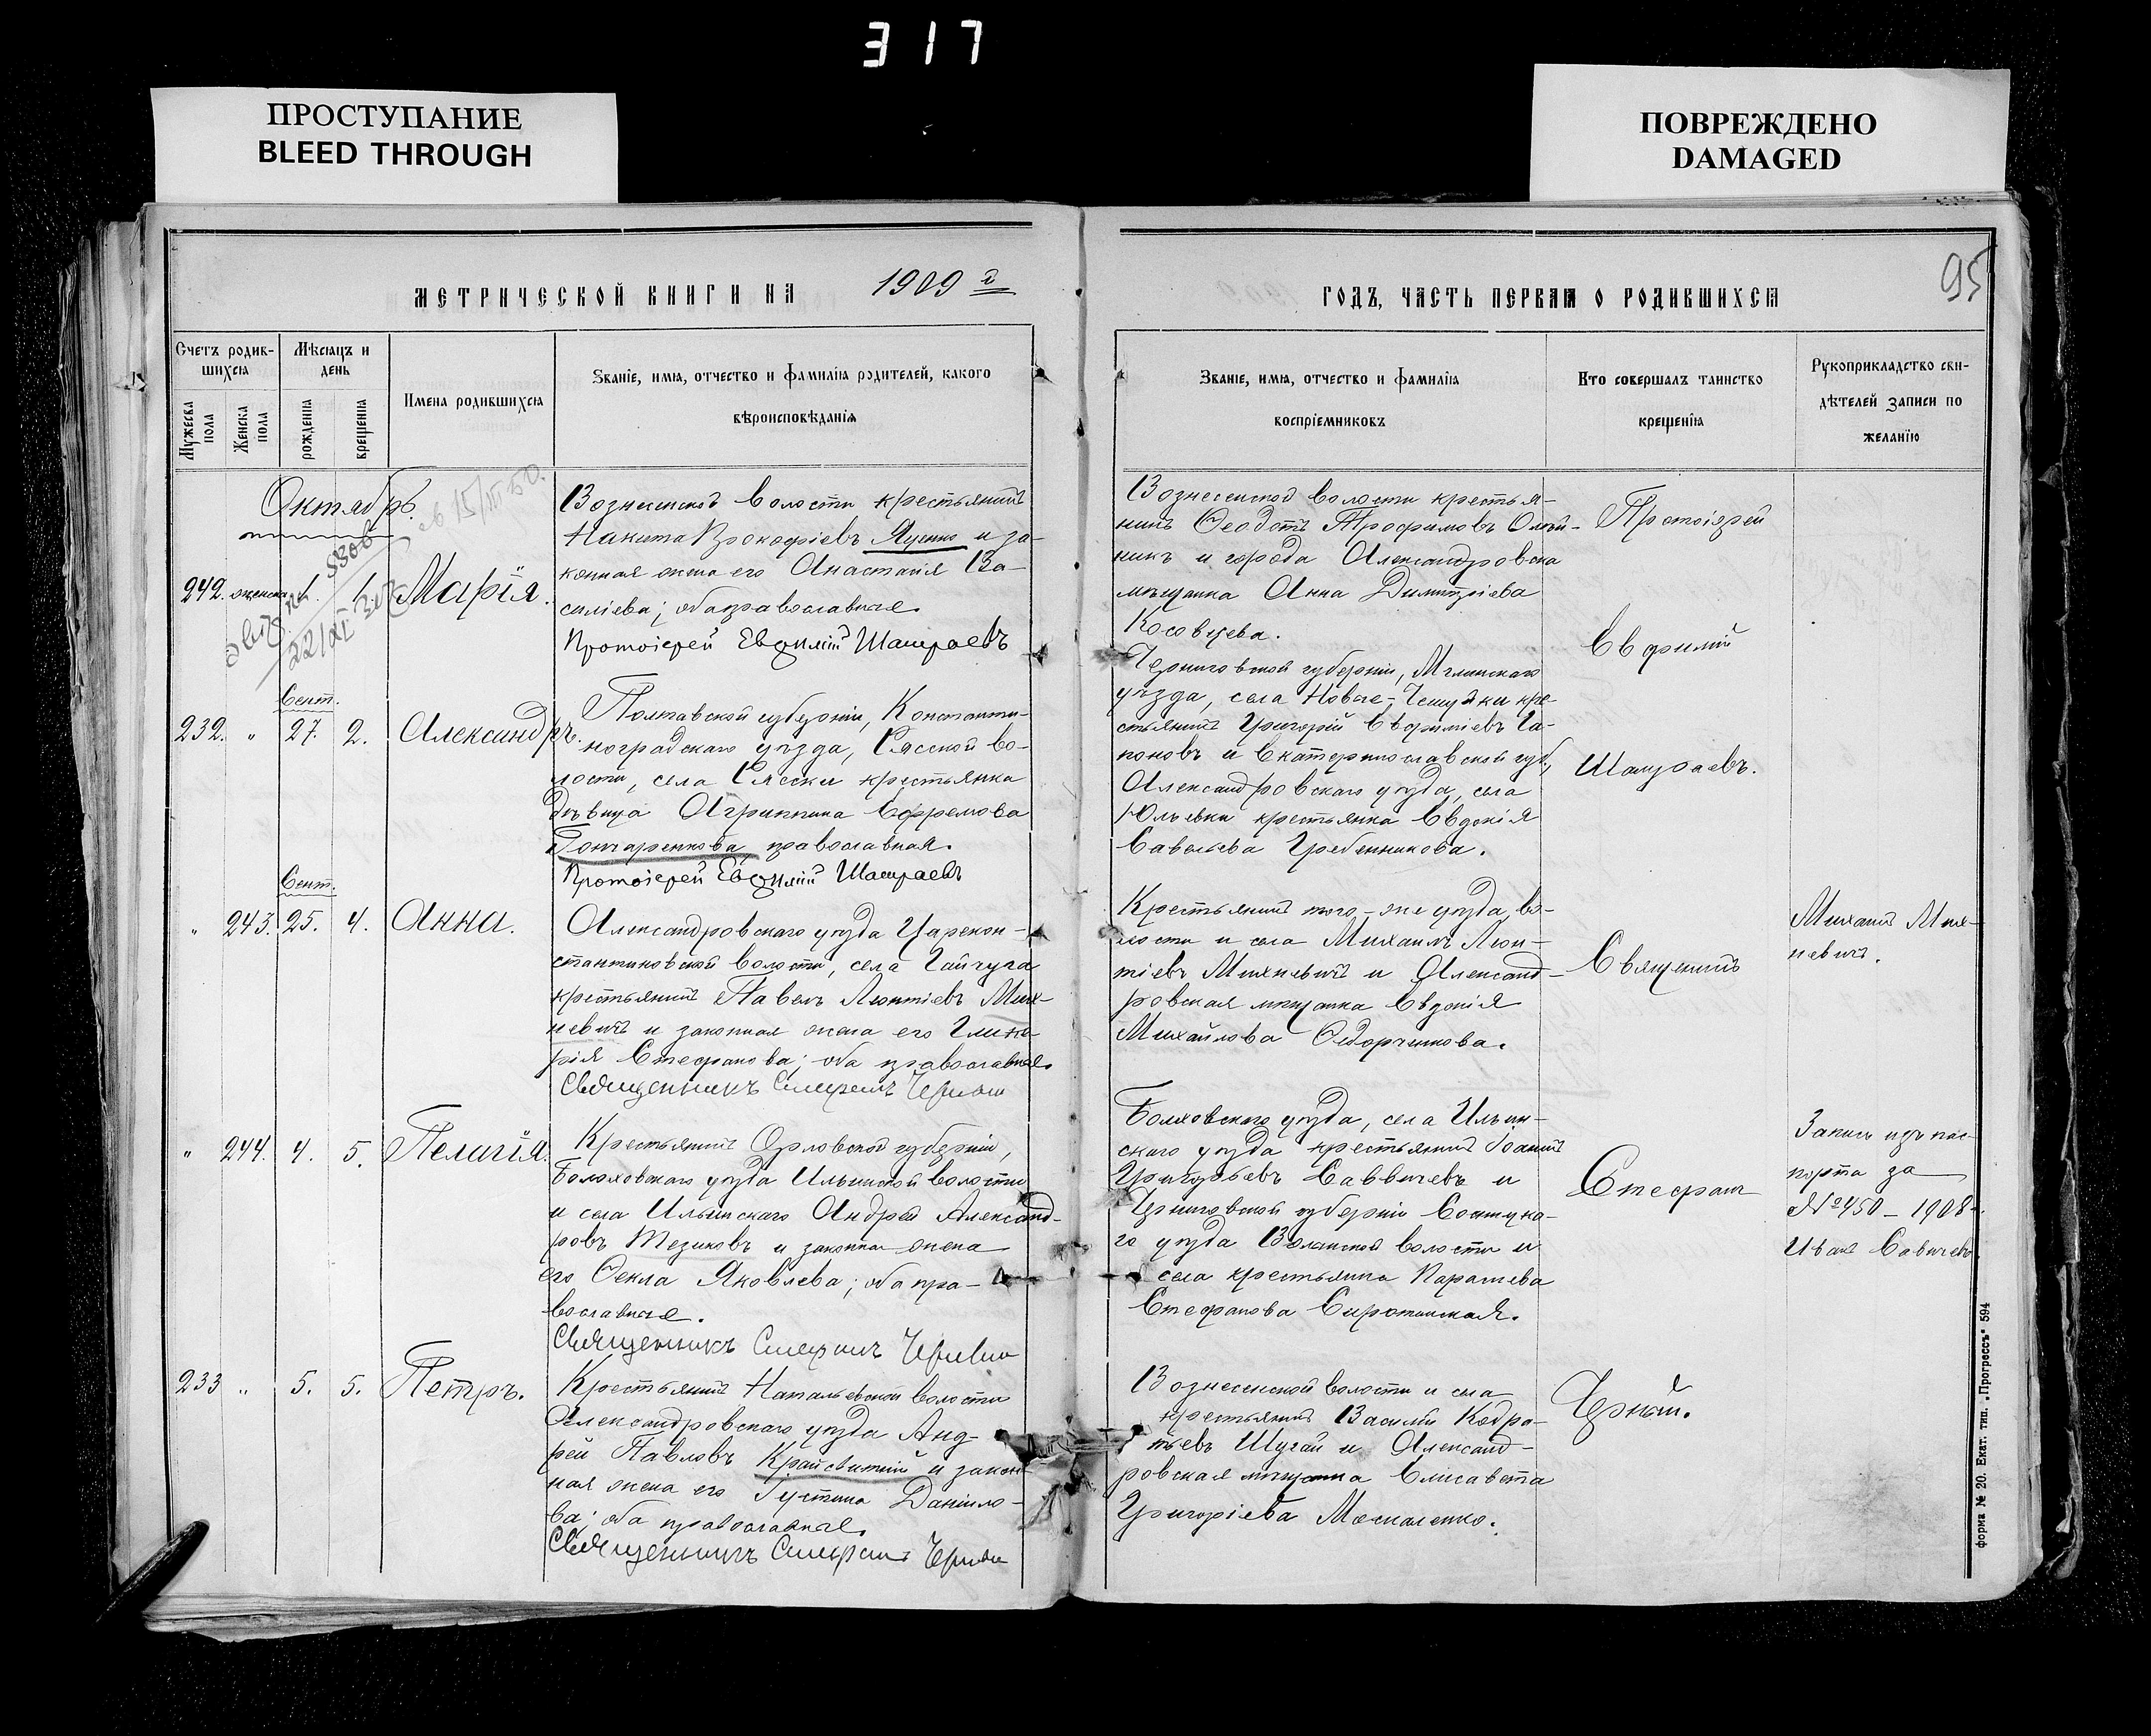 317
ПРОСТУПАНИЕ
BLEED THROUGH
ПОВРЕЖДЕНО
DAMAGED
95
МЕТРИЧЕСКОЙ КНИГИ НА 1909 г
ГОДЪ, ЧАСТЬ ПЕРВАЯ О РОДИВШИХСЯ
Счетъ родив-
шихся
Мѣсяцъ и
день
Мужеска
пола
Женска
пола
рожденія
крещенія
Имена родившихся
Званіе, имя, отчество и фамилія родителей, какого
вѣроисповѣданія
Званіе, имя, отчество и фамилія
воспріемниковъ
Кто совершалъ таинство
крещенія
Рукоприкладство сви-
дѣтелей записи по
желанію
Октябрь.
242. женска 1. 1. Марія.
Вознесенской волости крестьянинъ
Никита Прокофіевъ Яценко и за-
конная жена его Анастасія Ва-
силіева; оба православные.
Протоіерей Евфимій
Вознесенской волости крестья-
нинъ Феодотъ Трофимовъ Олей-
никъ и города Александровска
мѣщанка Анна Димитріева
Косовцева.
Протоіерей
Евфимій
Сент.
232. " 27. 2. Александръ.
Полтавской губерніи, Константи-
ноградскаго уѣзда, Сясской во-
лости, села Сясски крестьянка
дѣвица Агриппина Ефремова
Гончаренкова, православная.
Протоіерей Евфимій
Черниговской губерніи, Мглинскаго
уѣзда, села Новые-Чешуйки кре-
стьянинъ Григорій Евфиміевъ Га-
поновъ и Екатеринославской губ.,
Александровскаго уѣзда, села
Юльевки крестьянка Евдокія
Савельева Гребенникова.
Сент.
" 243. 25. 4. Анна.
Александровскаго уѣзда Царекон-
стантиновской волости, села Гайчула
крестьянинъ Павелъ Леонтіевъ Мих-
невичъ и законная жена его Глике-
рія Стефанова; оба православные.
Священникъ Стефанъ
Крестьянинъ того-же уѣзда, во-
лости и села Михаилъ Леон-
тіевъ Михневичъ и Александ-
ровская мѣщанка Евдокія
Михайлова Федорченкова.
Священникъ
Михаилъ Мих-
невичъ.
" 244. 4. 5. Пелагія.
Крестьянинъ Орловской губерніи,
Болховскаго уѣзда Ильинской волости
и села Ильинскаго Андрей Александ-
ровъ Тезиковъ и законная жена
его Фекла Яковлева; оба пра-
вославные.
Священникъ Стефанъ
Болховскаго уѣзда, села Ильин-
скаго уѣзда крестьянинъ Іоаннъ
Григорьевъ Саввичевъ и
Черниговской губерніи
го уѣзда волости и
села крестьянка
Стефанова Сиротинская.
Стефанъ
Запись изъ пас-
порта за
№ 450 - 1908
Иванъ Савичевъ
233 " 5. 5. Петръ.
Крестьянинъ Натальевской волости
Александровскаго уѣзда Анд-
рей Павловъ Крайсвитній и закон-
ная жена его Іустина Даніило-
ва; оба православные.
Священникъ Стефанъ
Вознесенской волости и села
крестьянинъ Василій Кодра-
тьевъ Шугай и Александ-
ровская мѣщанка Елисавета
Григоріева Москаленко.
Черный.
форма № 20. Екат. тип. „Прогрессъ" 594